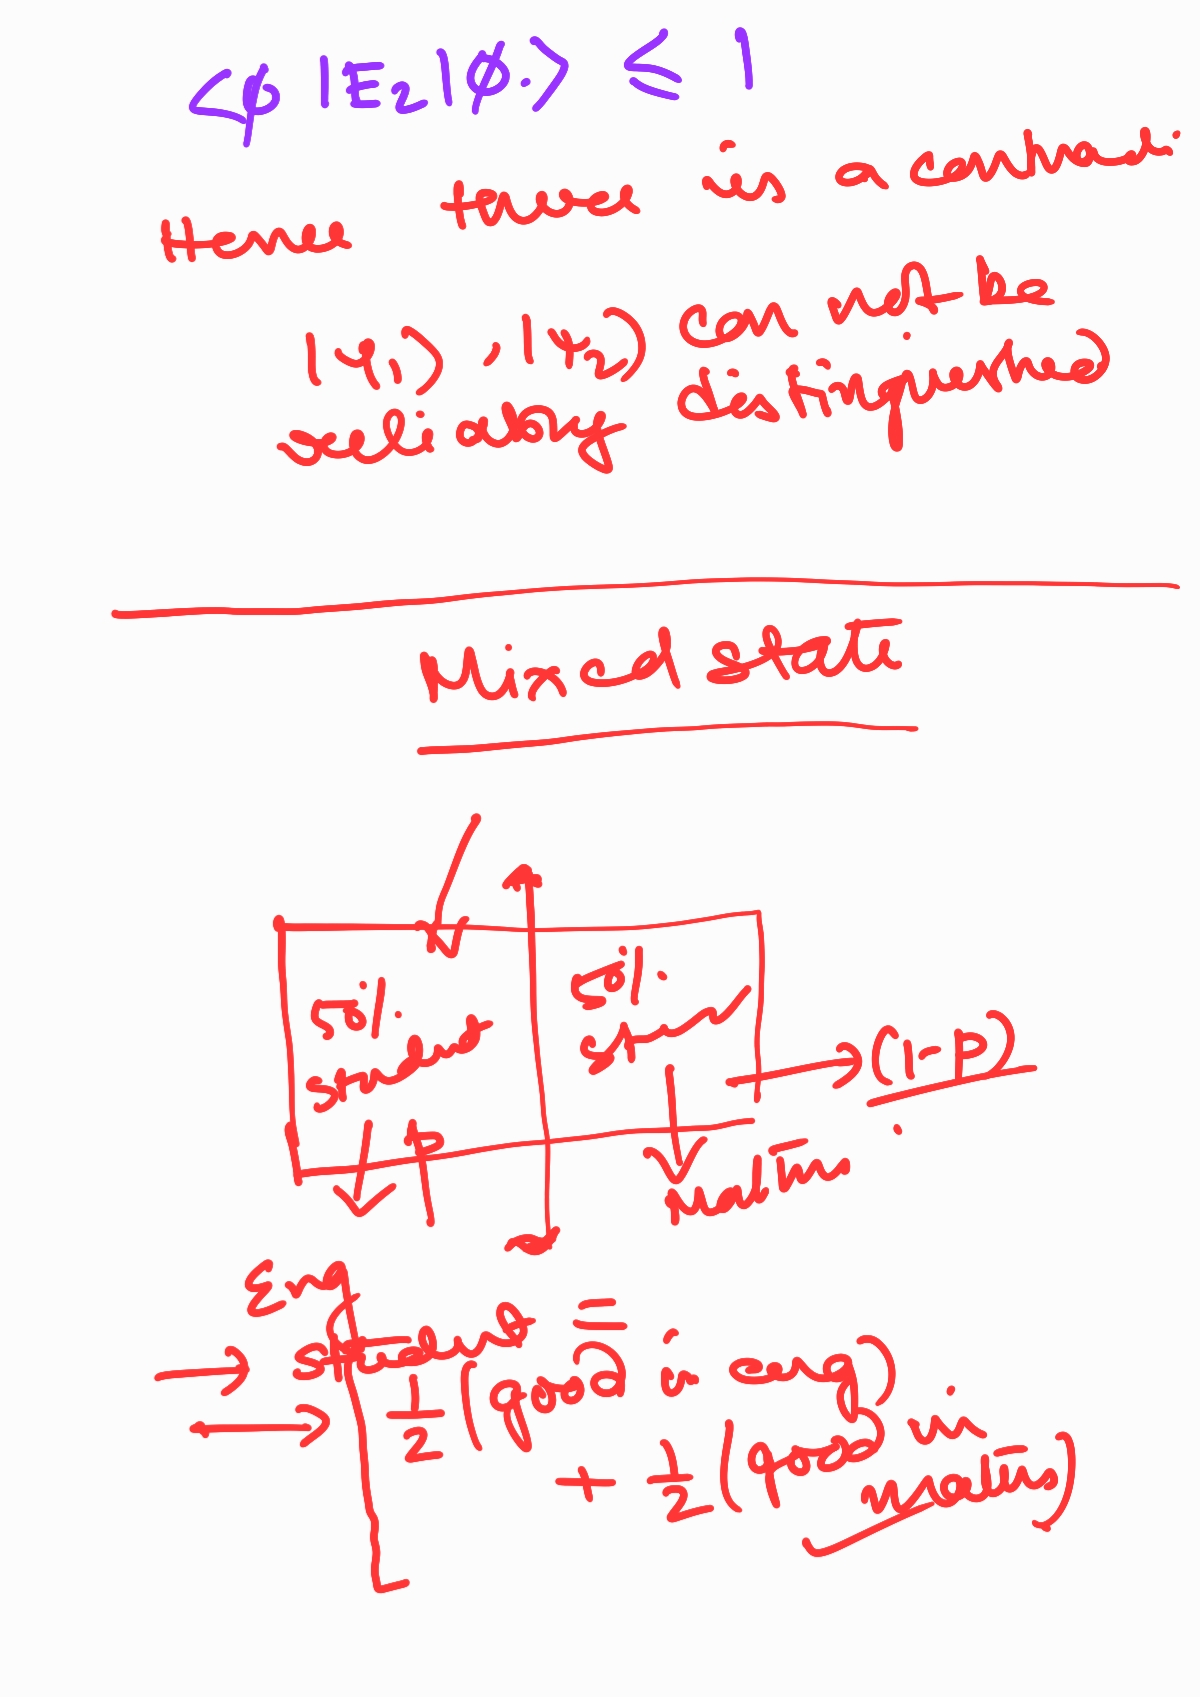 <φ|E₂|φ.> ≤ 1
Hence there is a contradi.
|ψ₁>, |ψ₂) can not be
reliably distinguished
Mixed state
50%. 50%.
student st
p (1-p)
Eng Maths
student =
1/2 (good in eng)
+ 1/2 (good in
maths)